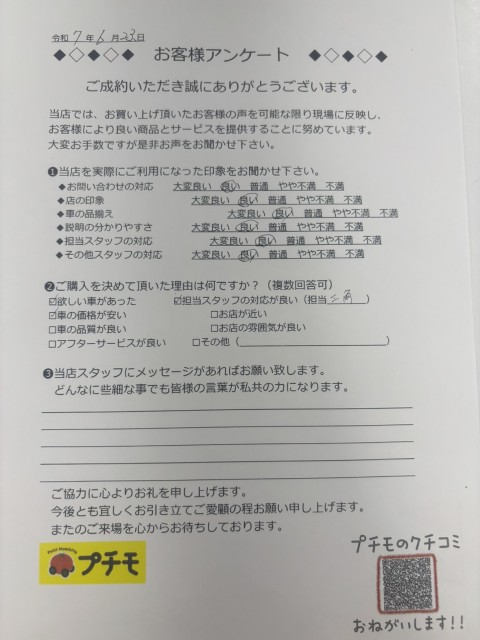 令和 7 年 6 月 23 日
◆◇◆◇◆ お客様アンケート ◆◇◆◇◆
ご成約いただき誠にありがとうございます。
当店では、お買い上げ頂いたお客様の声を可能な限り現場に反映し、
お客様により良い商品とサービスを提供することに努めています。
大変お手数ですが是非お声をお聞かせ下さい。
❶当店を実際にご利用になった印象をお聞かせ下さい。
◆お問い合わせの対応 大変良い 良い 普通 やや不満 不満
◆店の印象 大変良い 良い 普通 やや不満 不満
◆車の品揃え 大変良い 良い 普通 やや不満 不満
◆説明の分かりやすさ 大変良い 良い 普通 やや不満 不満
◆担当スタッフの対応 大変良い 良い 普通 やや不満 不満
◆その他スタッフの対応 大変良い 良い 普通 やや不満 不満
❷ご購入を決めて頂いた理由は何ですか？（複数回答可）
☑欲しい車があった ☑担当スタッフの対応が良い（担当 三角 ）
☑車の価格が安い □お店が近い
□車の品質が良い □お店の雰囲気が良い
□アフターサービスが良い □その他（ ）
❸当店スタッフにメッセージがあればお願い致します。
どんなに些細な事でも皆様の言葉が私共の力になります。
ご協力に心よりお礼を申し上げます。
今後とも宜しくお引き立てご愛顧の程お願い申し上げます。
またのご来場を心からお待ちしております。
プチモ
プチモのクチコミ
おねがいします!!